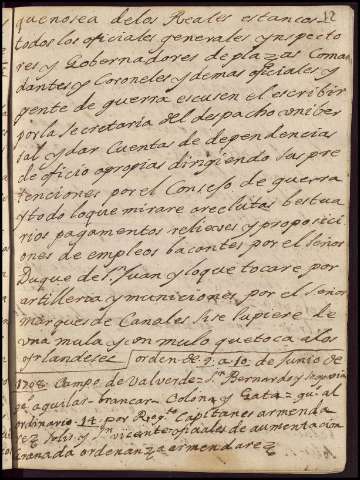 que no sea de los Reales estancos 12
todos los oficiales generales ynspecto
res y Gobernadores de plazas Coman
dantes y Coroneles y demas oficiales y
gente de guerra escusen el escribir
por la secretaria del despacho univer
sal y dar Cuentas de dependencias
de oficio o propias dirigiendo sus pre
tenciones por el Consejo de guerra
y todo loque mirare a reclutas bestua
rios pagamentos relieves y proposici
ones de empleos bacantes por el señor
Duque de Sn Juan y loque tocare por
artilleria y municiones por el señor
marques de Canales
una mula y un mulo que toca alos
orden de 9 a 10 de Junio de
1708. Campo de Valverde Sn Bernardo y
aguilar brancar Colona y Gata
ordinario 14 por Regto Capitanes armenda
rez Solis y Sn vicente oficiales de aumentacion
Granada ordenanza armendarez